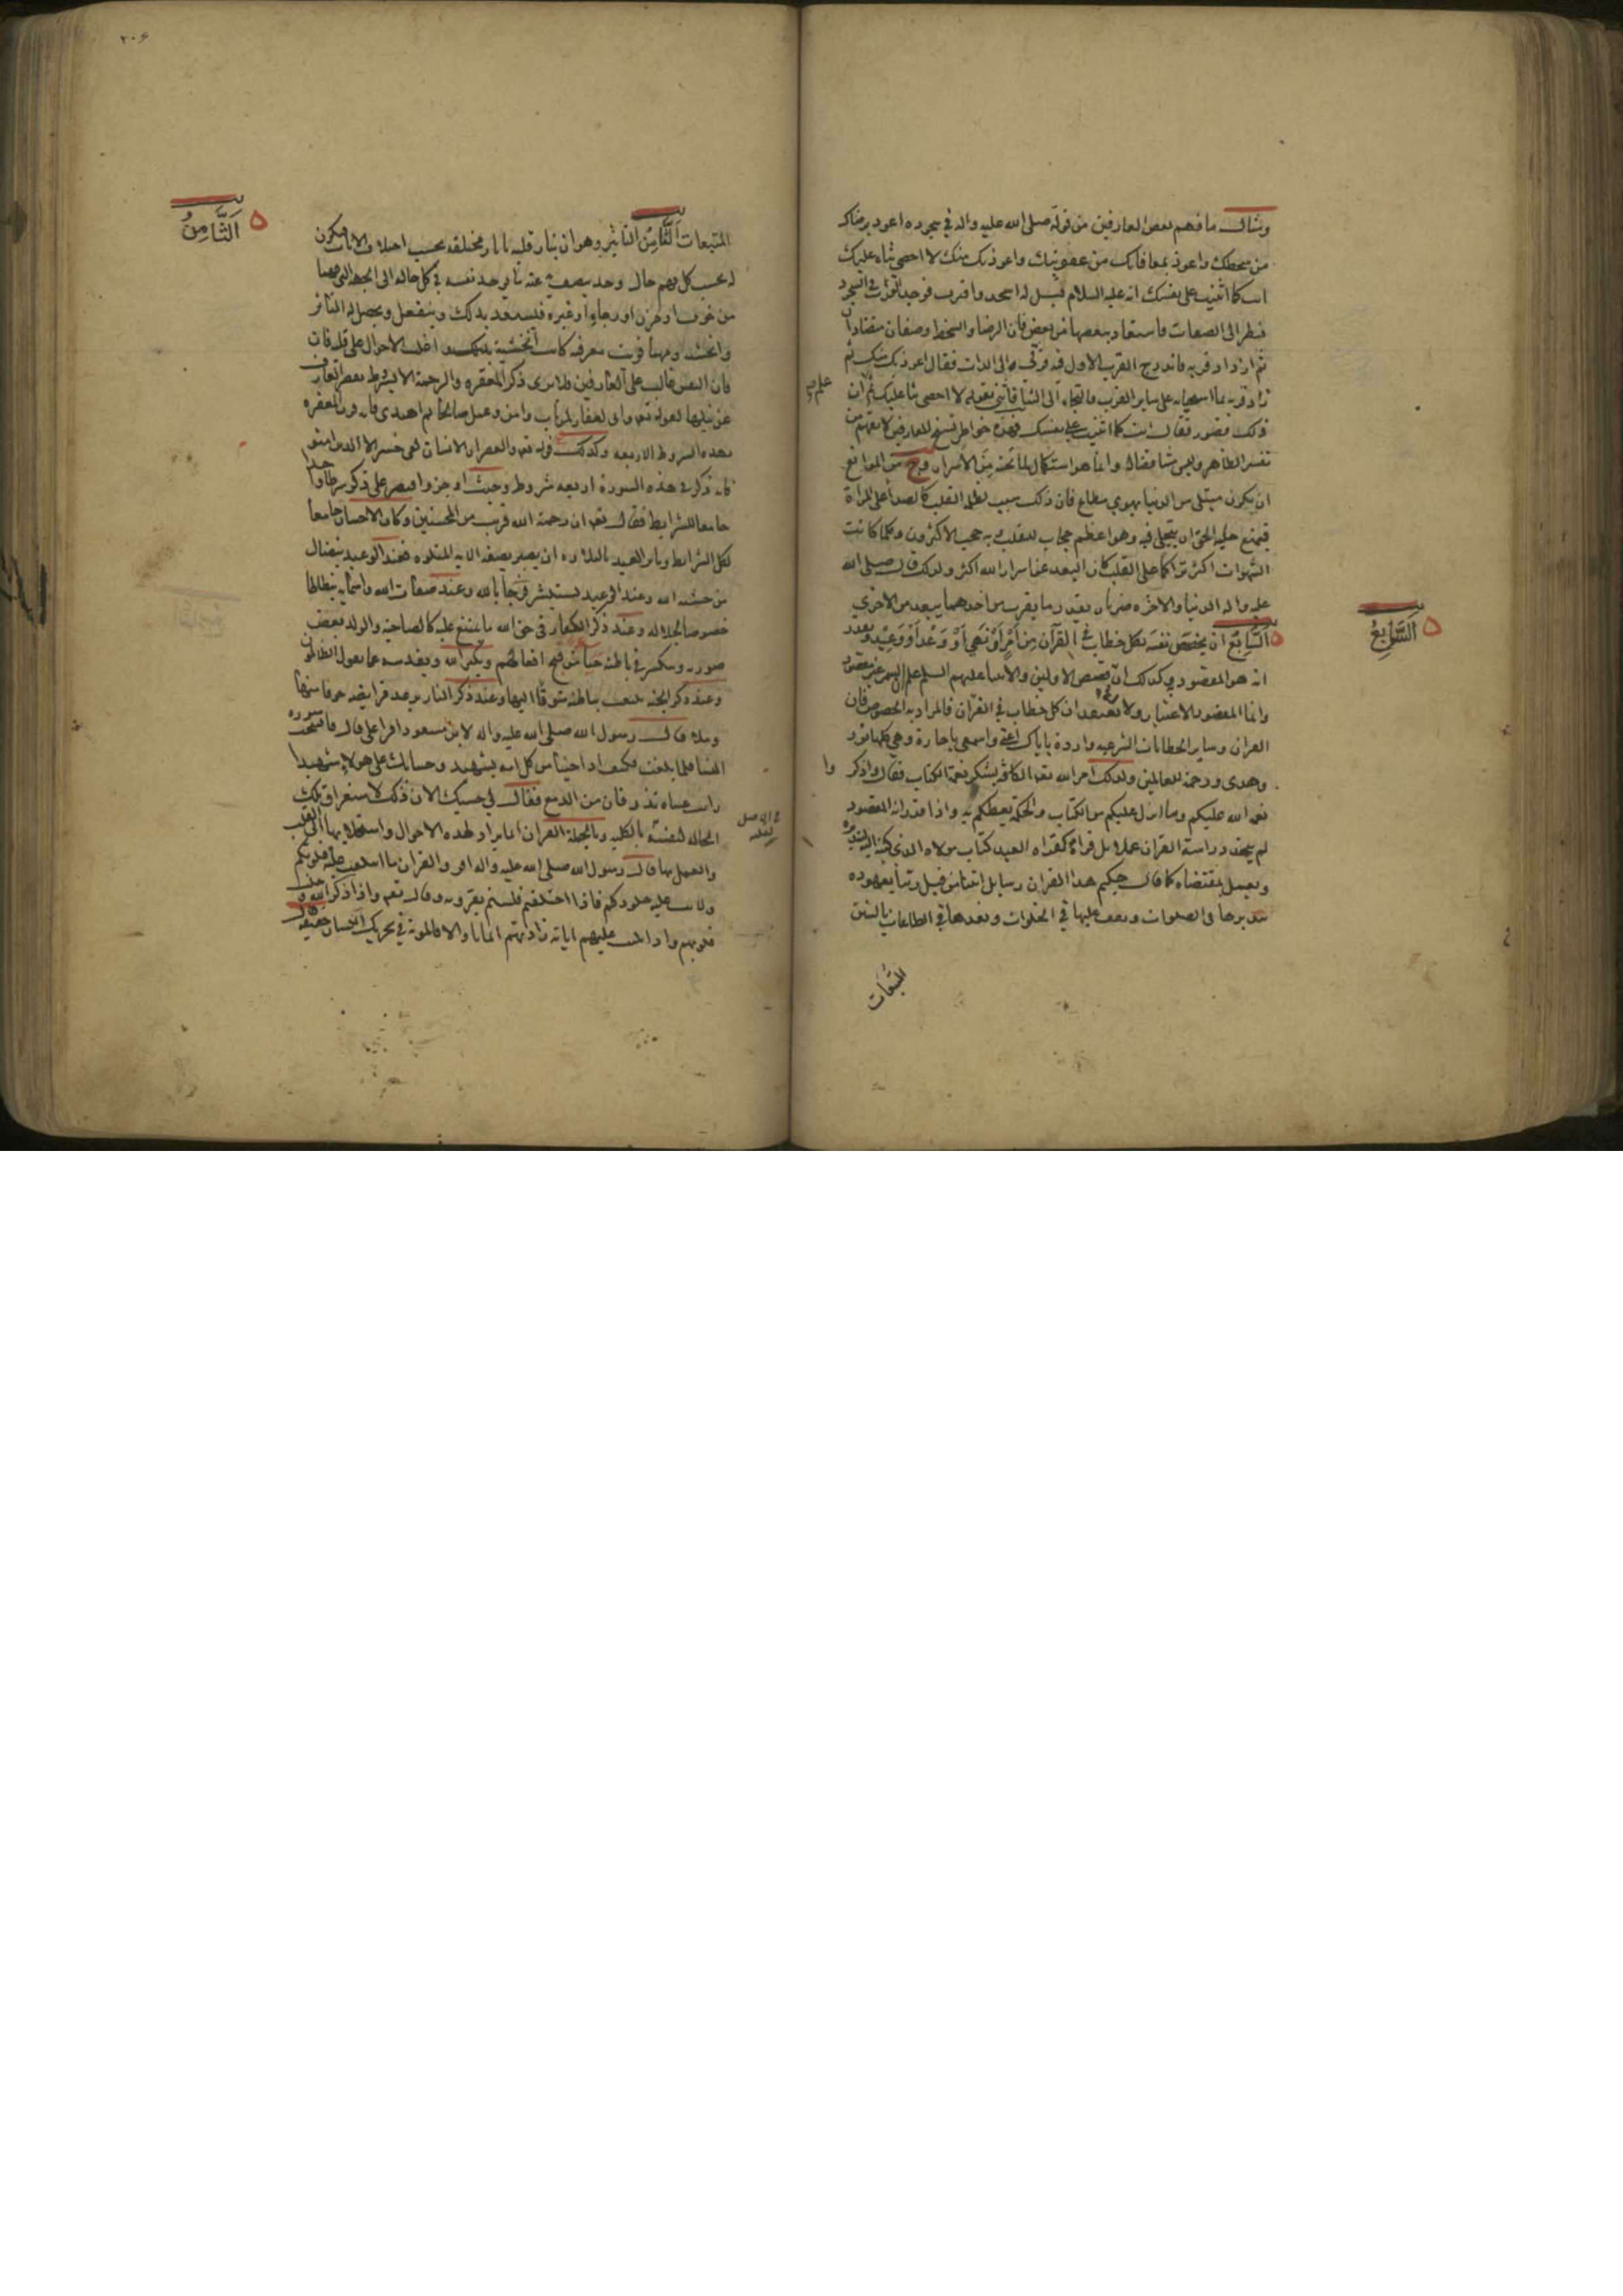 ومثال ما فهم بعض العارفين من قوله صلى الله عليه واله في سجوده اعوذ برضاك
من سخطك واعوذ بمعافاتك من عقوبتك واعوذ بك منك لا احصى ثناء عليك
انت كما اثنيت على نفسك انه عليه السلام قيل له اسجد واقترب فوجد القرب في السجود
فنظر الى الصفات فاستعاذ ببعضها من بعض فان الرضا والسخط وصفان متضادان
ثم ازداد قربه فاندرج القرب الاول فيه فرقى الى الذات فقال اعوذ بك منك ثم
زاد قربه بما استحيا به على بساط القرب فالتجاء الى الثنا فاثنى بقوله لا احصى ثنا عليك ثم علم ان
ذلك قصور فقال انت كما اثنيت على نفسك فهذه خواطر تسنح للعارفين لا تفهم من
تفسير الظاهر وليس مناقضا له وانما هو استكمال لما تحته من الاسرار ومن الموانع
ان يكون مبتلى من الدنيا بهوى مطاع فان ذلك سبب ظلمة القلب كالصدأ على المرآة
فيمنع جلية الحق ان يتجلى فيه وهو اعظم حجاب للقلب وبه حجب الاكثرون وكلما كانت
الشهوات اكثر تراكما على القلب كان البعد عن اسرار الله اكثر ولذلك قال صلى الله
عليه واله الدنيا والاخرة ضرتان بقدر ما يقرب من احدهما يبعد من الاخرى
السَّابِعُ ان يخصص نفسه بكل خطاب في القرآن من أَمْرٍ أَوْ نَهْي أَوْ وَعْد أَوْ وَعِيْد ويقدر
انه هو المقصود وكذلك ان قصص الاولين والانبياء عليهم السلم علم ان السمر غير مقصود
وانما المقصود الاعتبار ولا تعتقد ان كل خطاب في القرآن فالمراد به الخصوص فان
القران وساير الخطابات الشرعية واردة باياك اعنى واسمعى يا جارة وهي كلها نور
وهدى ورحمة للعالمين ولذلك امر الله تعالى الكافة بشكر نعمة الكتاب فقال واذكروا
نعمة الله عليكم وما انزل عليكم من الكتاب والحكمة يعظكم به واذا قدر انه المقصود
لم يتخذ دراسة القران عملا بل قراءة كقراءة العبد كتاب مولاه الذي كتبه اليه ليتدبره
ويعمل بمقتضاه كما قال حكيم هذا القران رسايل اتتنا من قبل ربنا بعهوده
نتدبرها في الصلوات ونقف عليها في الخلوات ونعدها في الطاعات بالسنن
المتبعات
السَّابِعُ
المتبعات الثَّامِنُ التاثير وهو ان يتاثر قلبه باثار مختلفة بحسب اختلاف الايات فيكون
له بحسب كل فهم حال ووجد يتصف به عند ما يوجه نفسه في كل حالة الى الجهة التي فهمها
من خوف او حزن او رجاء او غيره فيستعد بذلك وينفعل ويحصل له التاثر
والخشية ومهما قويت معرفته كانت الخشية اغلب الاحوال على قلبه فان
فان التضييق غالب على العارفين فلا يرى ذكر المغفرة والرحمة الا بشروط يقصر العارف
عن نيلها كقوله تعالى واني لغفار لمن تاب وامن وعمل صالحا ثم اهتدى فانه قرن المغفرة
بهذه الشروط الاربعة وكذلك قوله تعالى والعصر ان الانسان لفي خسر الا الذين امنوا
فانه ذكر في هذه السورة اربعة شروط وحيث اوجز واقتصر على ذكر شرطا واحدا
جامعا للشرايط فقال تعالى ان رحمة الله قريب من المحسنين وكان الاحسان جامعا
لكل الشرايط وتاثر العبد بالتلاوة ان يصير بصفة الاية المتلوة فعند الوعيد يتضال
من خشية الله وعند الوعد يستبشر فرحا بالله وعند صفات الله واسمائه يتطاطا
خضوعا لجلاله وعند ذكر الكفار في حق الله ما يمتنع عليه كالصاحبة والولد يغض
صوته وينكسر في باطنه حياء من قبح افعالهم ويكبر الله ويقدسه عما يقول الظالمون
وعند ذكر الجنة ينبعث بباطنه شوقا اليها وعند ذكر النار يرعد فرايصه خوفا منها
ولما قال رسول الله صلى الله عليه واله لابن مسعود اقرا على قال فافتتحت سورة
النسا فلما بلغت فكيف اذا جئنا من كل امة بشهيد وجئنا بك على هولاء شهيدا
رايت عيناه تذرفان من الدمع فقال لي حسبك الان ذلك لاستغراق تلك
الحالة لنفسه بالكلية وبالجملة القران انما يراد لهذه الاحوال واستجلابها الى القلب
والعمل بها قال رسول الله صلى الله عليه واله اقرؤا القران ما ائتلفت عليه قلوبكم
ولانت عليه جلودكم فاذا اختلفتم فلستم تقرونه وقال تعالى واذا ذكر الله وجلت
قلوبهم واذا تليت عليهم اياته زادتهم ايمانا والا فالمونة في تحريك اللسان خفيفة
الثَّامِنُ
في الاصل
٢٠٤